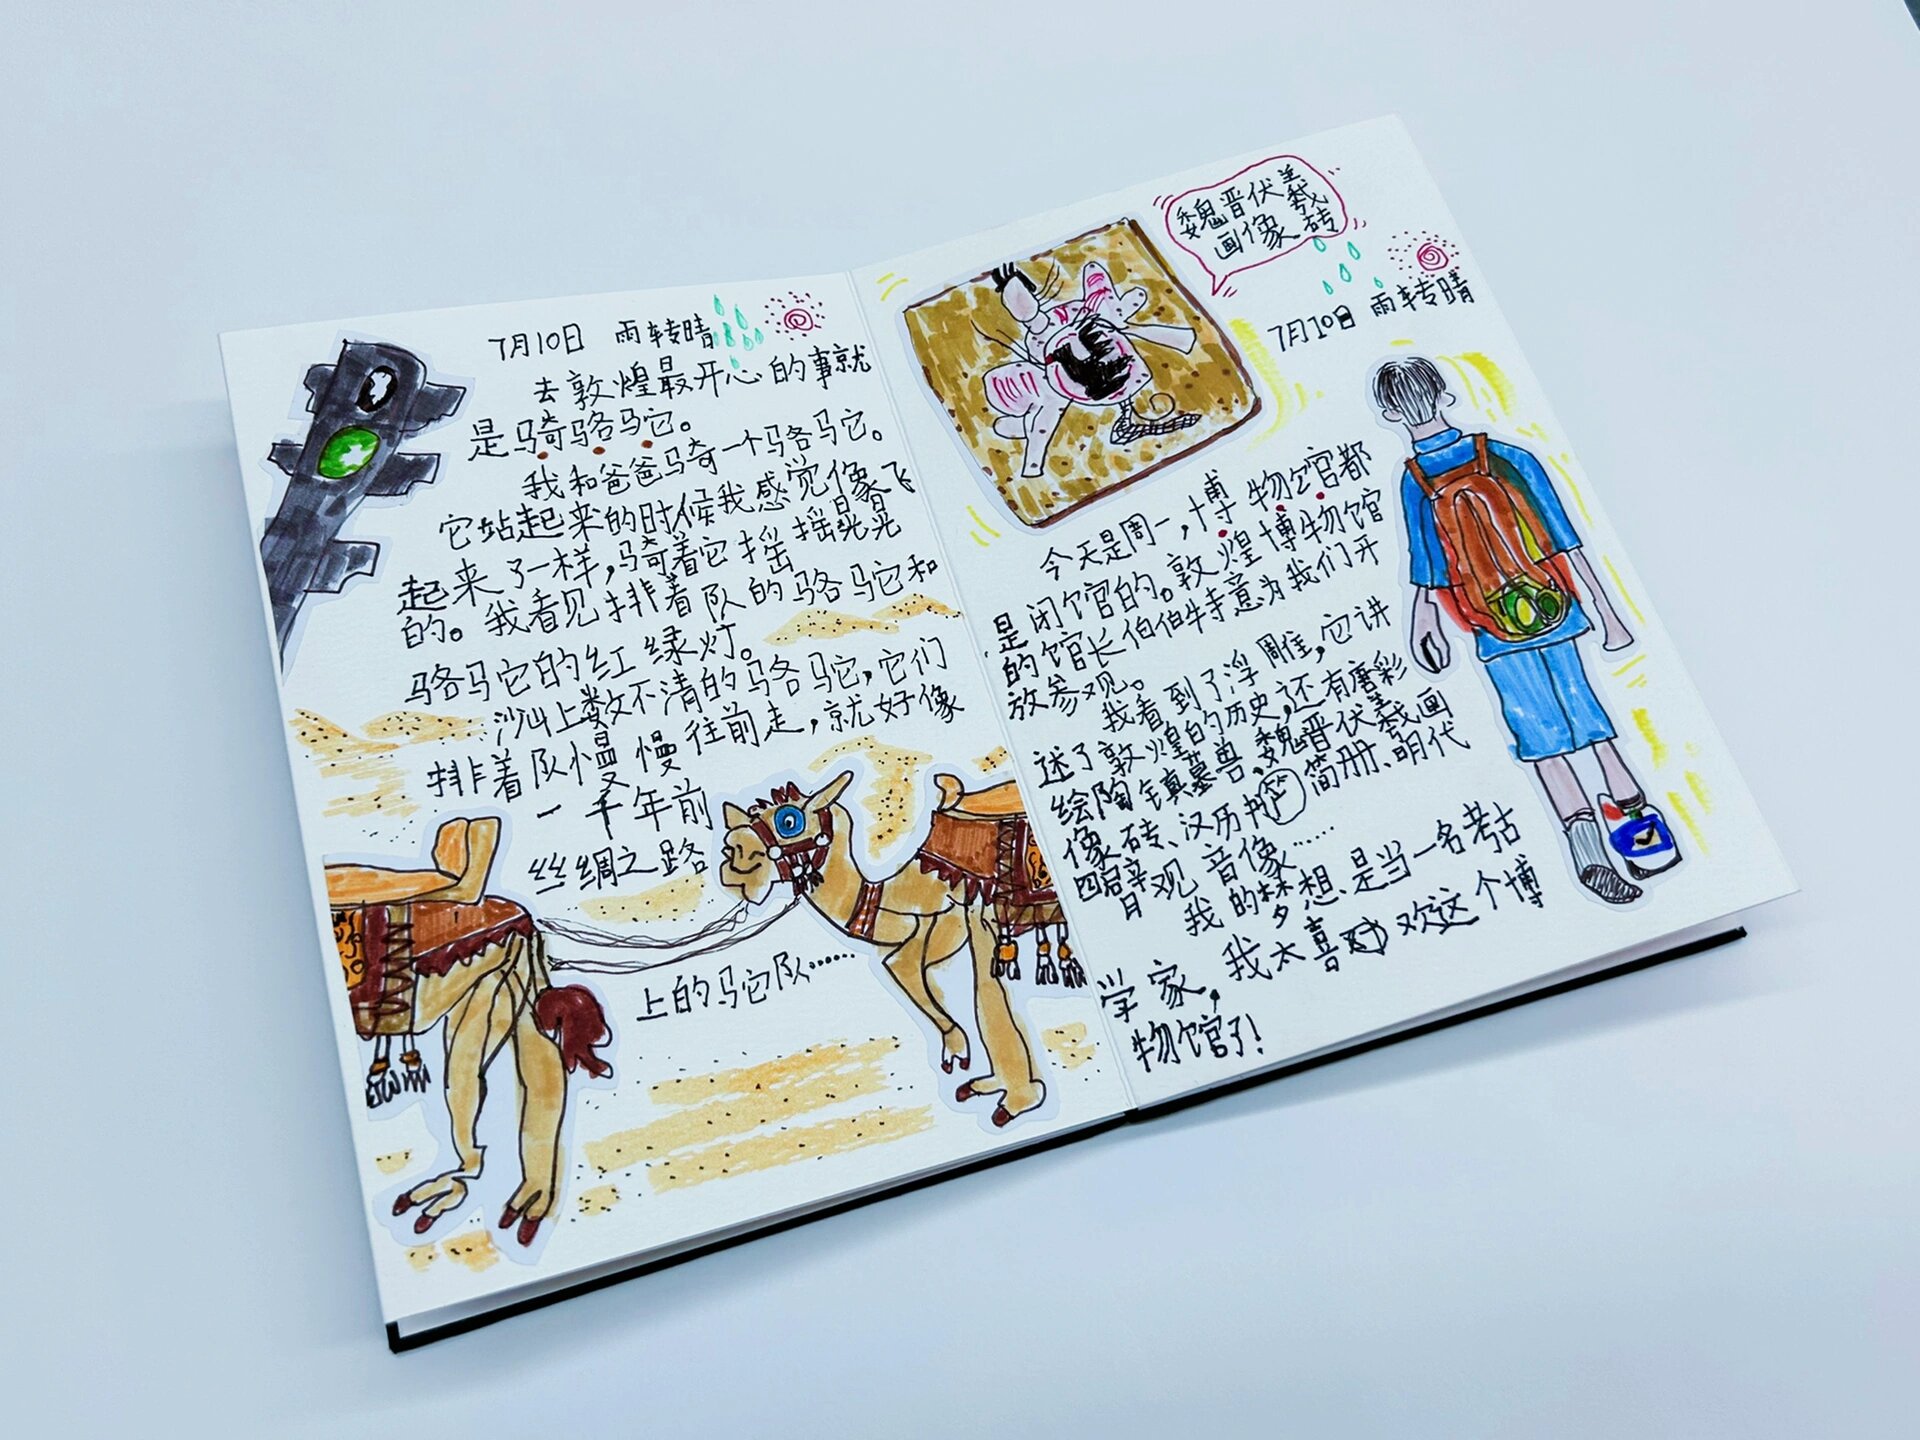 7月10日 雨转晴
去敦煌最开心的事就
是骑骆驼。
我和爸爸骑一个骆驼。
它站起来的时候我感觉像飞
起来了一样,骑着它摇摇晃晃
的。我看见排着队的骆驼和
骆驼的红绿灯。
沙山上数不清的骆驼,它们
排着队慢慢往前走,就好像
一千年前
丝绸之路
上的驼队……
魏晋伏羲
画像砖
7月10日 雨转晴
今天是周一,博物馆都
是闭馆的。敦煌博物馆
的馆长伯伯特意为我们开
放参观。
我看到了浮雕,它讲
述了敦煌的历史,还有唐彩
绘陶镇墓兽、魏晋伏羲画
像砖、汉历书简册、明代
四臂观音像……
我的梦想是当一名考古
学家,我太喜欢这个博
物馆了!